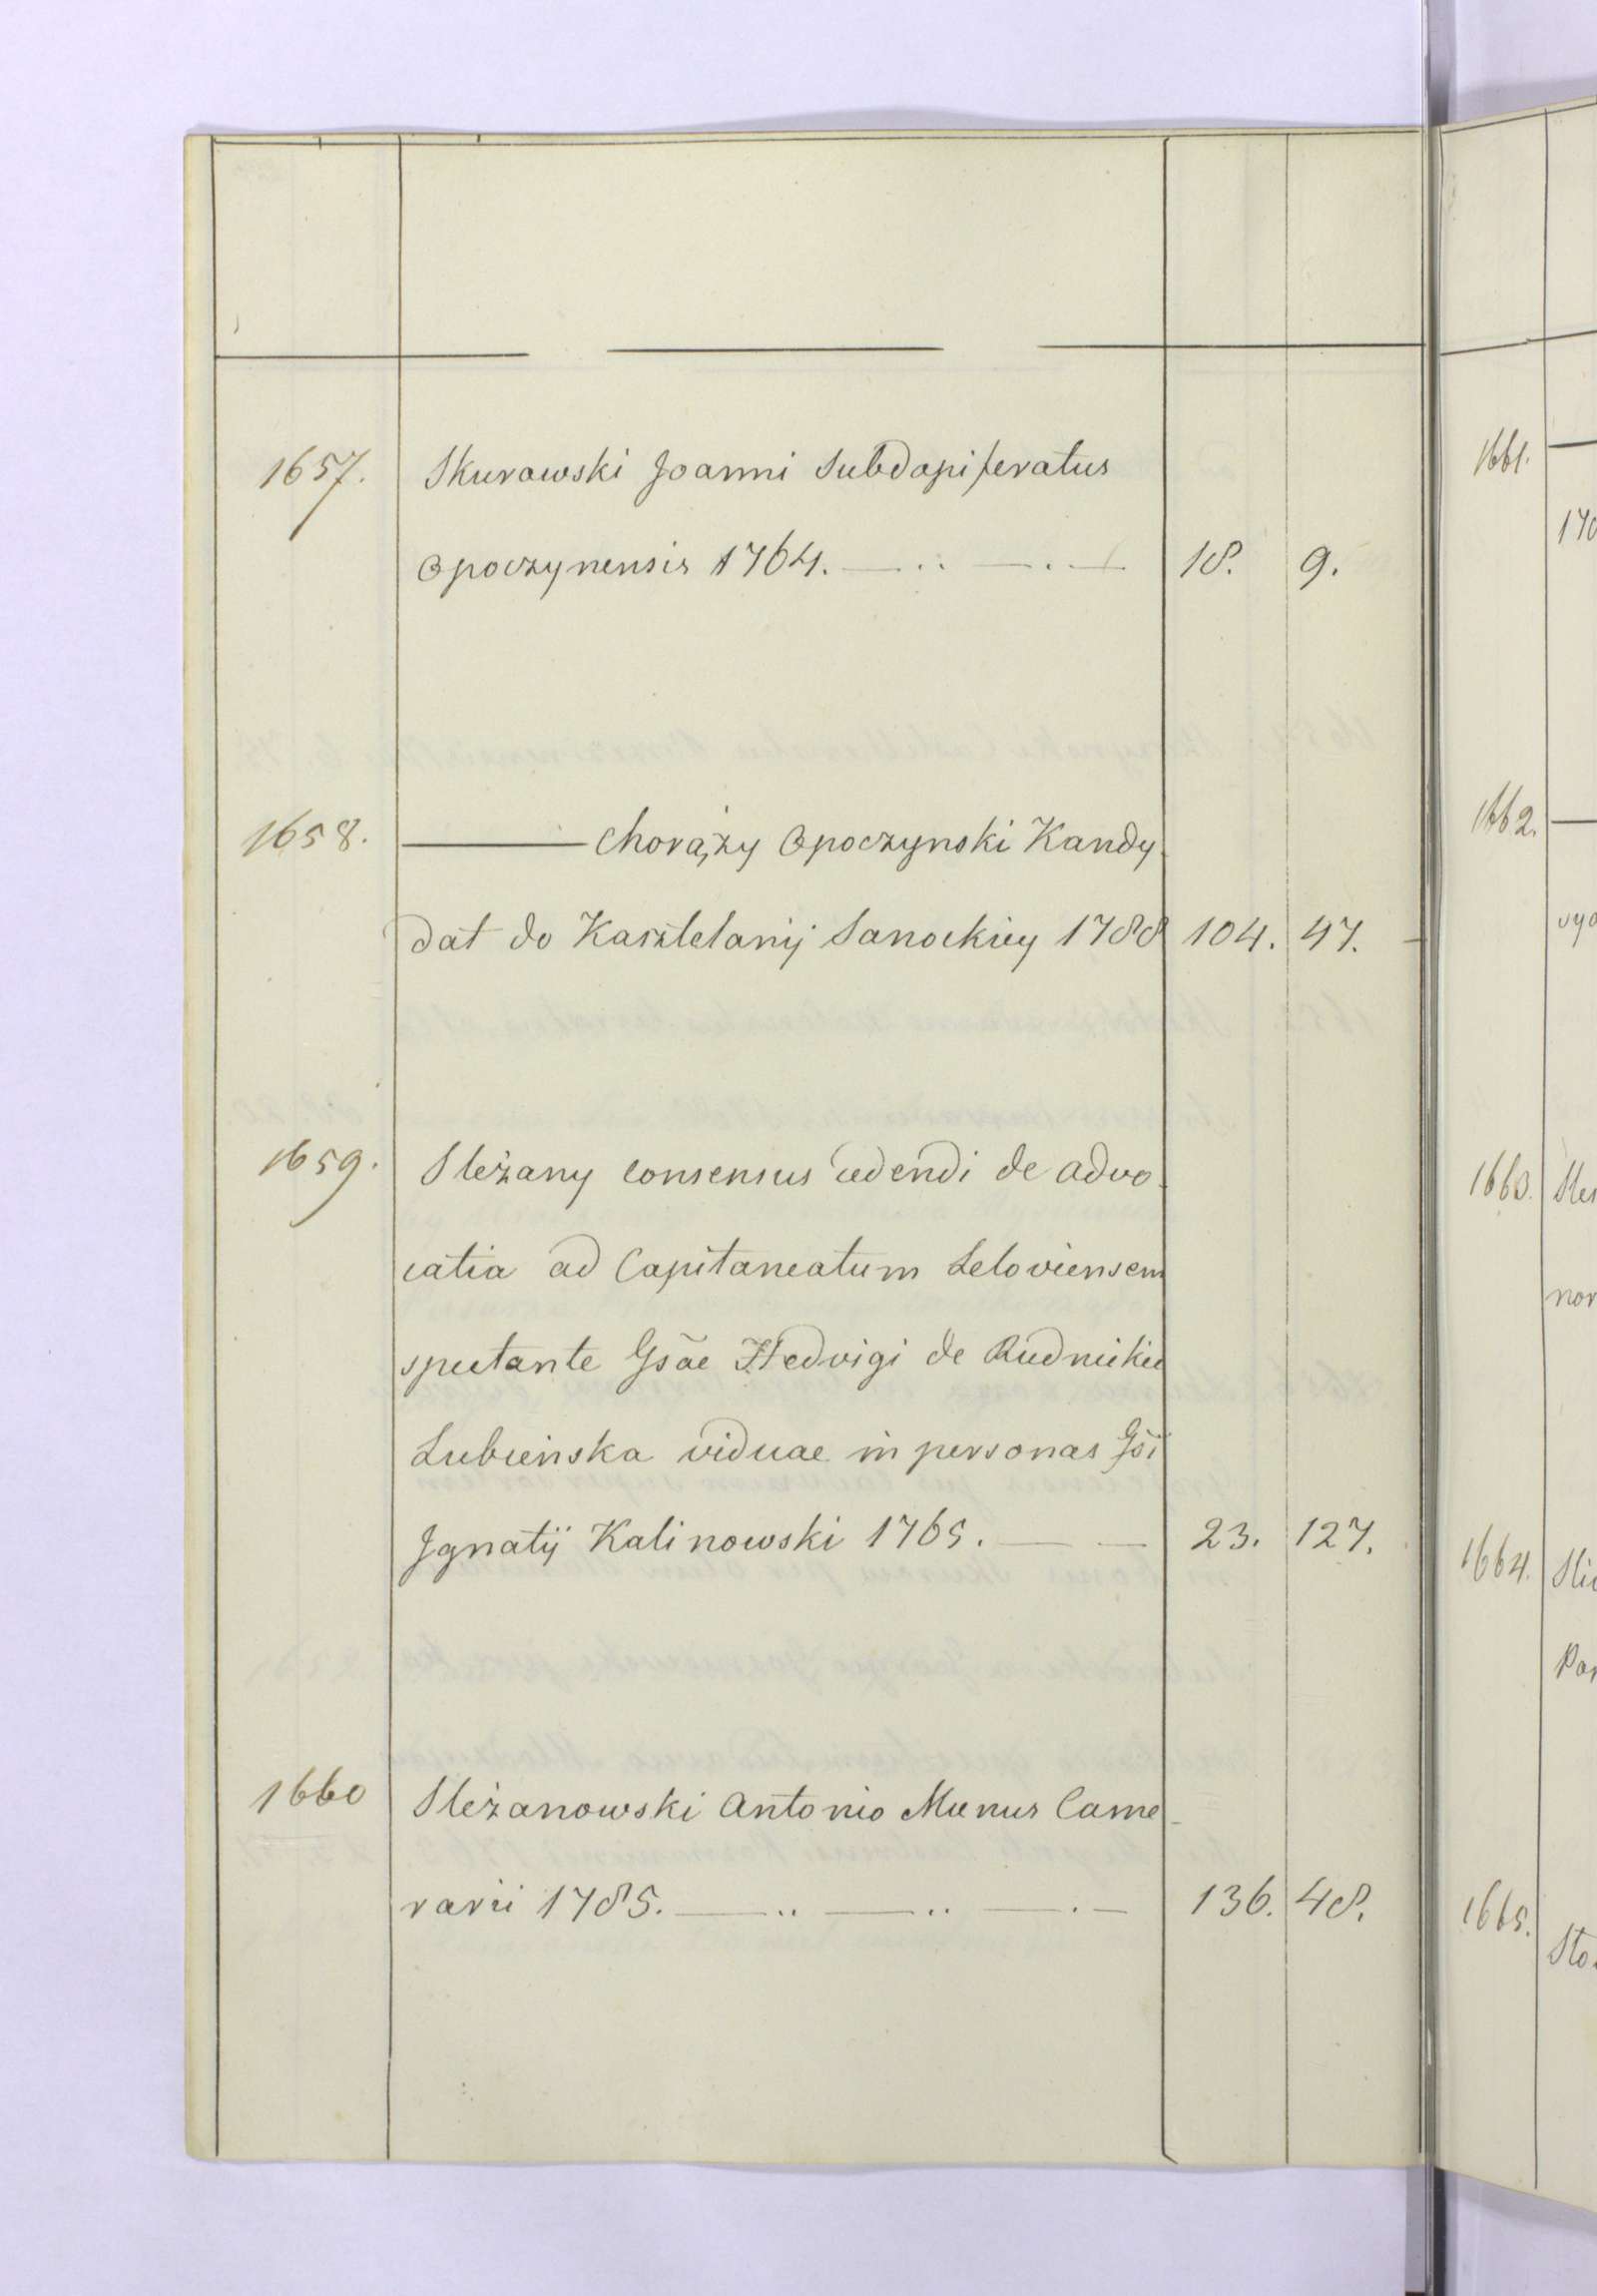 1657. Skurowski Joanni Subdapiferatus
Opoczynensis 1764. — .. — . — 18. 9.
1658. ——— Chorąży Opoczynski Kandy-
dat do Kasztelanij Sanockiey 1788 104. 47.
1659. Sleżany consensus cedendi de advo-
catia ad Capitaneatum Leloviensem
spectante Gsae Hedvigi de Rudnickie
Lubieńska viduae in personas Gsi
Jgnatij Kalinowski 1765. — — 23. 127.
1660 Sleżanowski Antonio Munus Came-
rarii 1785. — .. — .. — . — 136. 48.
1661.
170
1662.
1663. Sles
nor
1664. Sli
Par
1665.
Sto